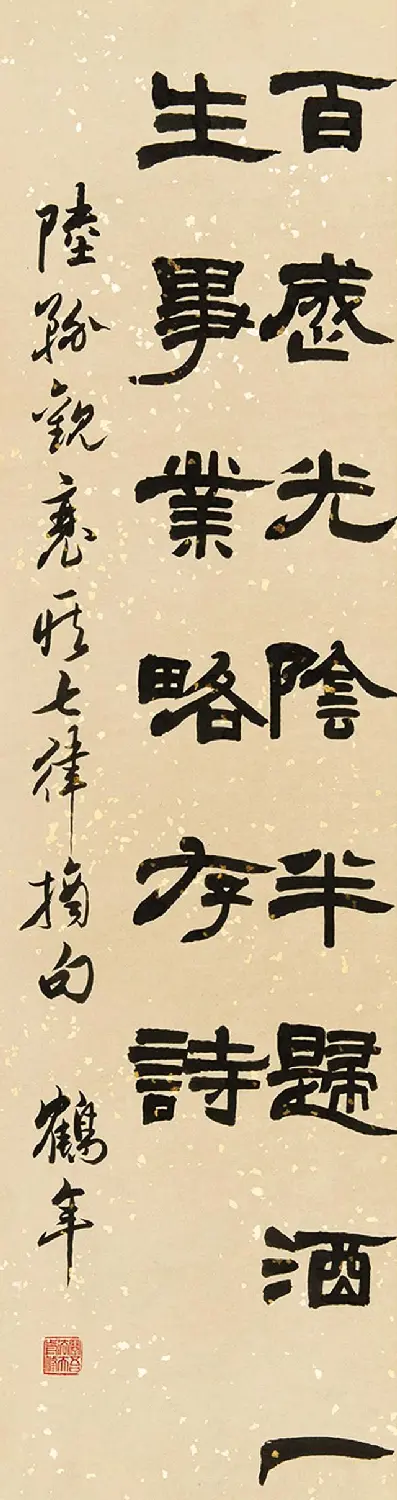 百歲光陰半歸酒一
生事業略存詩
陸務觀衰疾七律摘句 鶴年